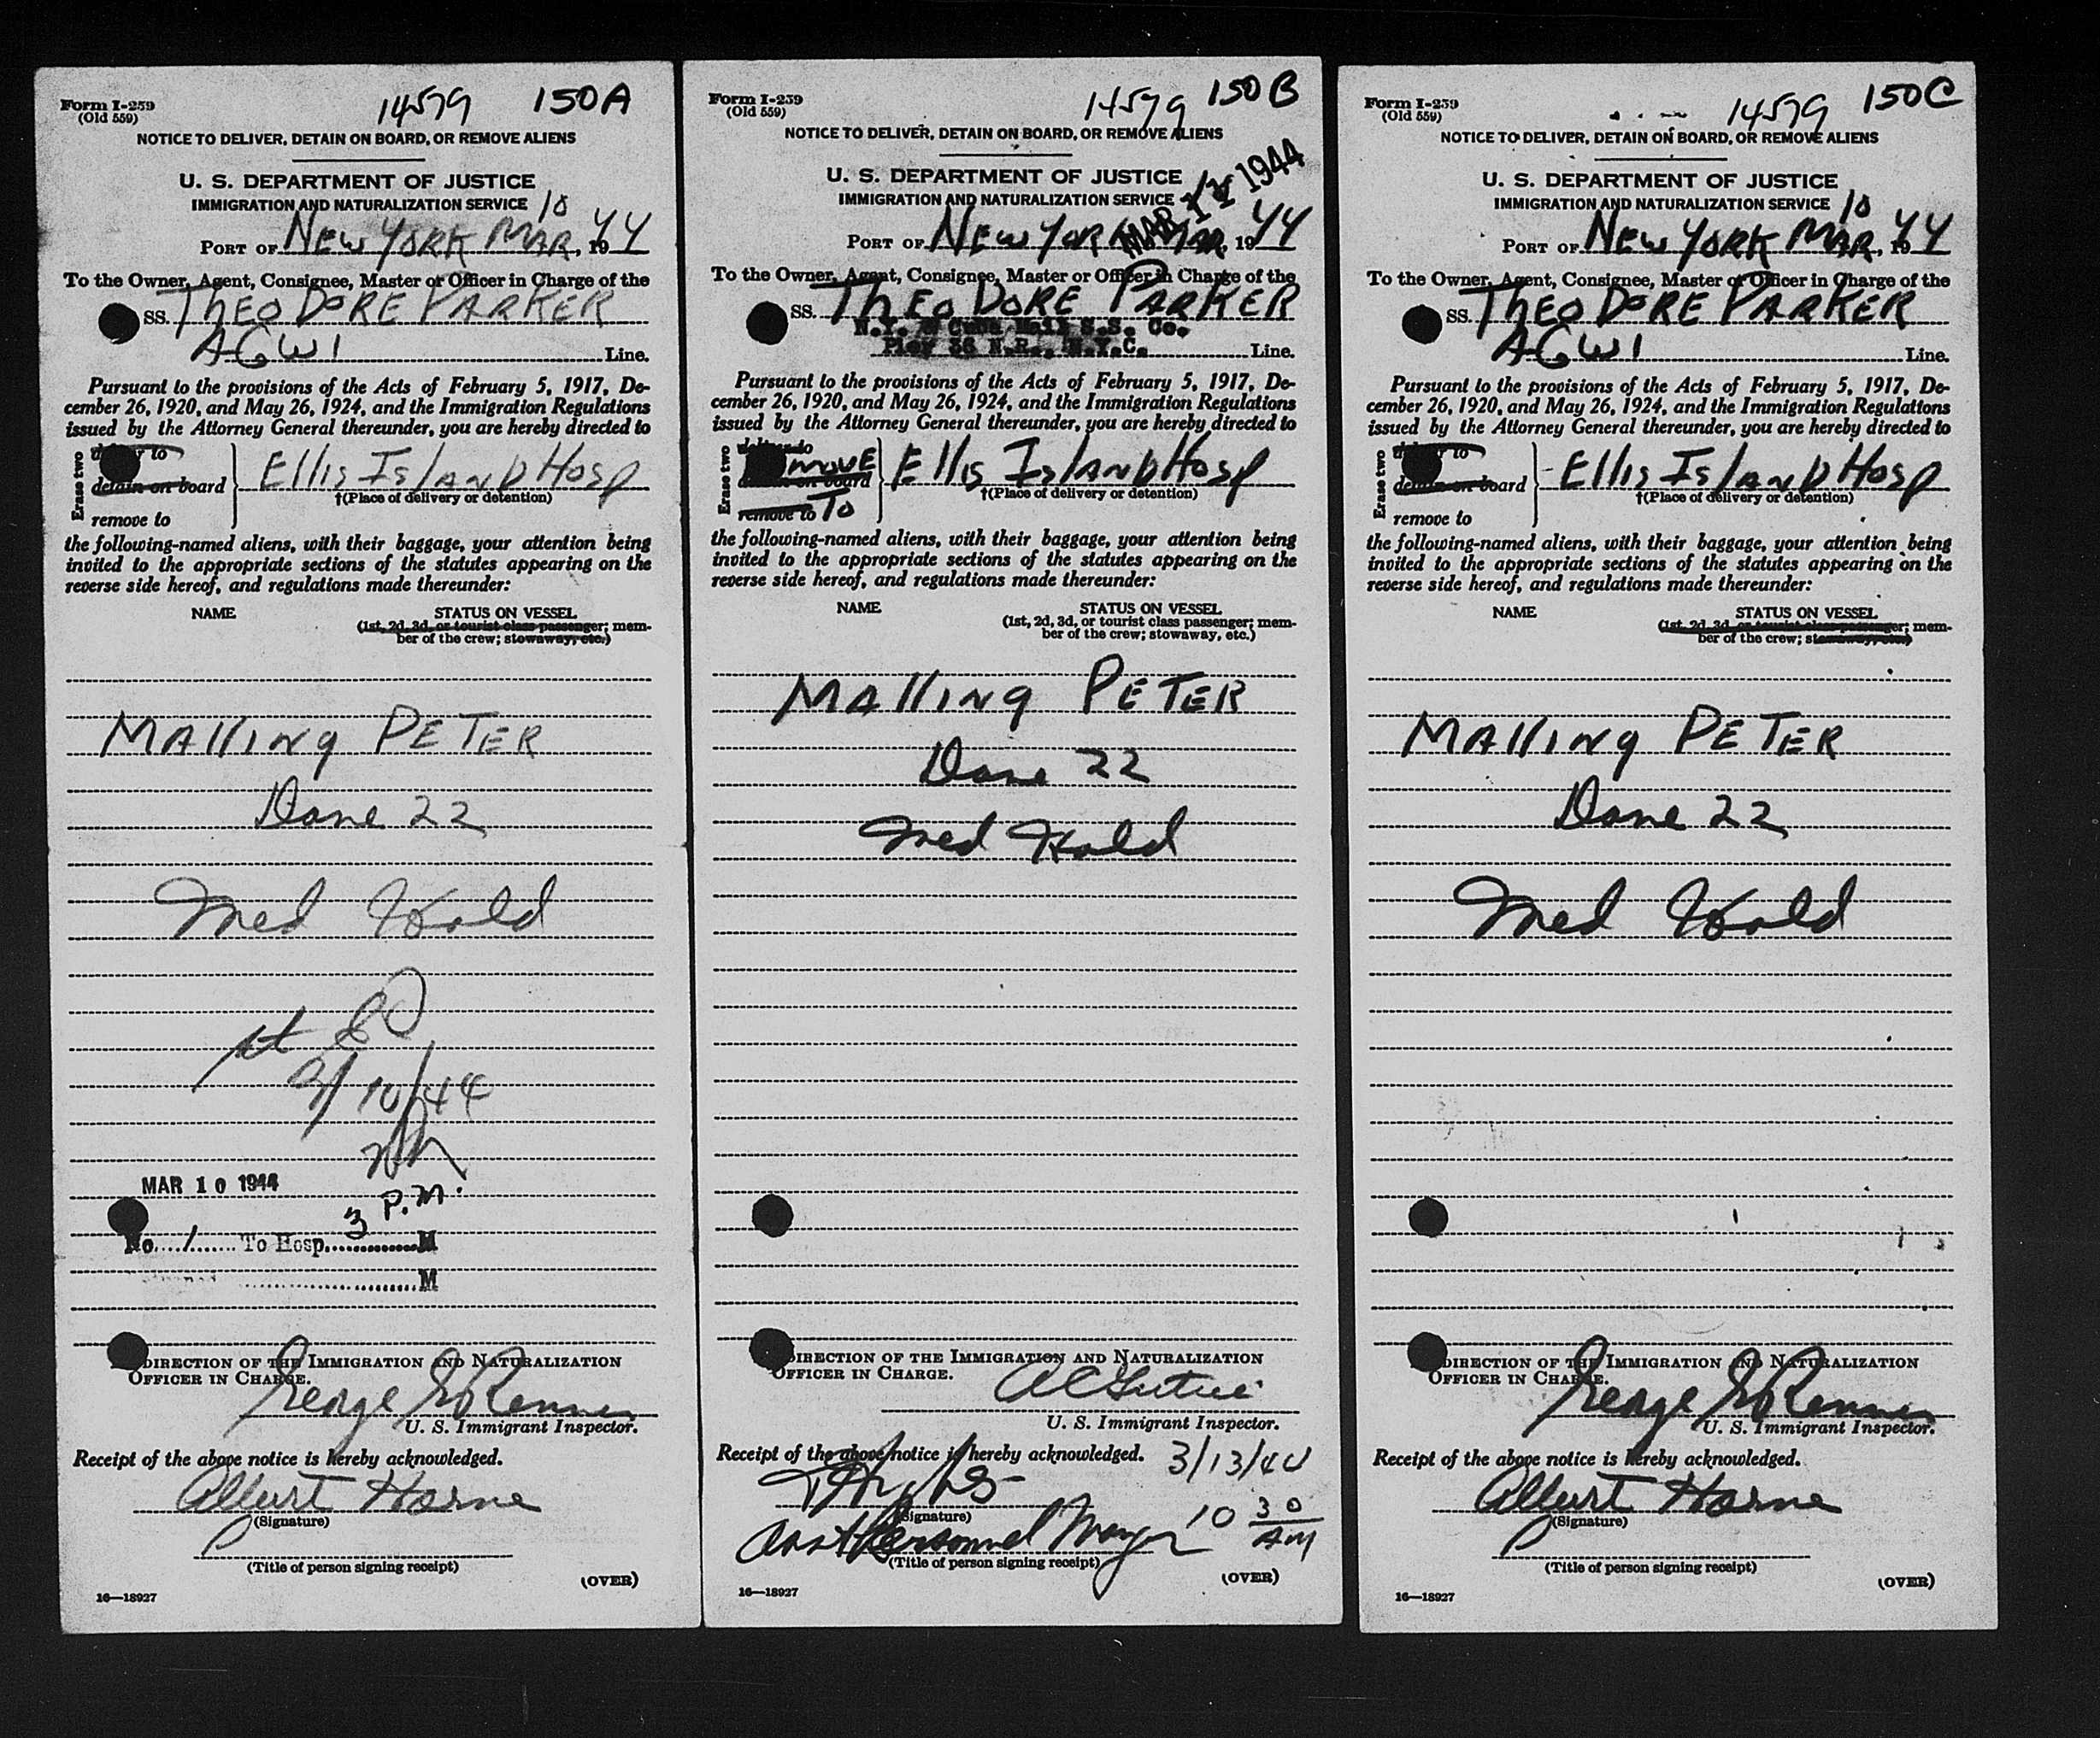 14579 150A
Form I-259
(Old 559)
NOTICE TO DELIVER, DETAIN ON BOARD, OR REMOVE ALIENS
U. S. DEPARTMENT OF JUSTICE
IMMIGRATION AND NATURALIZATION SERVICE
PORT OF NEW YORK MAR 10, 1944
To the Owner, Agent, Consignee, Master or Officer in Charge of the
SS. THEODORE PARKER
AGWI Line.
Pursuant to the provisions of the Acts of February 5, 1917, De-
cember 26, 1920, and May 26, 1924, and the Immigration Regulations
issued by the Attorney General thereunder, you are hereby directed to
Erase two
to
detain on board
Ellis Island Hosp
†(Place of delivery or detention)
remove to
the following-named aliens, with their baggage, your attention being
invited to the appropriate sections of the statutes appearing on the
reverse side hereof, and regulations made thereunder:
NAME STATUS ON VESSEL
(1st, 2d, 3d, or tourist class passenger; mem-
ber of the crew; stowaway, etc.)
Malling PETER
Dane 22
Med Hold
3/10/44
MAR 10 1944
3 P.M.
No. 1 To Hosp. M
M
DIRECTION OF THE IMMIGRATION AND NATURALIZATION
OFFICER IN CHARGE.
George
U. S. Immigrant Inspector.
Receipt of the above notice is hereby acknowledged.
Albert Horne
(Signature)
(Title of person signing receipt)
(OVER)
16—18927
14579 150B
Form I-259
(Old 559)
NOTICE TO DELIVER, DETAIN ON BOARD, OR REMOVE ALIENS
U. S. DEPARTMENT OF JUSTICE
IMMIGRATION AND NATURALIZATION SERVICE
MAR 1944
PORT OF NEW YORK MAR, 1944
To the Owner, Agent, Consignee, Master or Officer in Charge of the
SS. THEODORE PARKER
N.Y. & Cuba Mail S.S. Co.
Pier 36 N.R., N.Y.C. Line.
Pursuant to the provisions of the Acts of February 5, 1917, De-
cember 26, 1920, and May 26, 1924, and the Immigration Regulations
issued by the Attorney General thereunder, you are hereby directed to
Erase two
deliver to
on board
Ellis Island Hosp
†(Place of delivery or detention)
remove to TO
the following-named aliens, with their baggage, your attention being
invited to the appropriate sections of the statutes appearing on the
reverse side hereof, and regulations made thereunder:
NAME STATUS ON VESSEL
(1st, 2d, 3d, or tourist class passenger; mem-
ber of the crew; stowaway, etc.)
Malling PETER
Dane 22
Med Hold
DIRECTION OF THE IMMIGRATION AND NATURALIZATION
OFFICER IN CHARGE.
U. S. Immigrant Inspector.
Receipt of the above notice is hereby acknowledged. 3/13/44
(Signature)
10 30 AM
Asst Personnel
(Title of person signing receipt)
(OVER)
16—18927
14579 150C
Form I-259
(Old 559)
NOTICE TO DELIVER, DETAIN ON BOARD, OR REMOVE ALIENS
U. S. DEPARTMENT OF JUSTICE
IMMIGRATION AND NATURALIZATION SERVICE
PORT OF NEW YORK MAR 10, 1944
To the Owner, Agent, Consignee, Master or Officer in Charge of the
SS. THEODORE PARKER
AGWI Line.
Pursuant to the provisions of the Acts of February 5, 1917, De-
cember 26, 1920, and May 26, 1924, and the Immigration Regulations
issued by the Attorney General thereunder, you are hereby directed to
Erase two
to
detain on board
Ellis Island Hosp
†(Place of delivery or detention)
remove to
the following-named aliens, with their baggage, your attention being
invited to the appropriate sections of the statutes appearing on the
reverse side hereof, and regulations made thereunder:
NAME STATUS ON VESSEL
(1st, 2d, 3d, or tourist class passenger; mem-
ber of the crew; stowaway, etc.)
Malling PETER
Dane 22
Med Hold
DIRECTION OF THE IMMIGRATION AND NATURALIZATION
OFFICER IN CHARGE.
George
U. S. Immigrant Inspector.
Receipt of the above notice is hereby acknowledged.
Albert Horne
(Signature)
(Title of person signing receipt)
(OVER)
16—18927